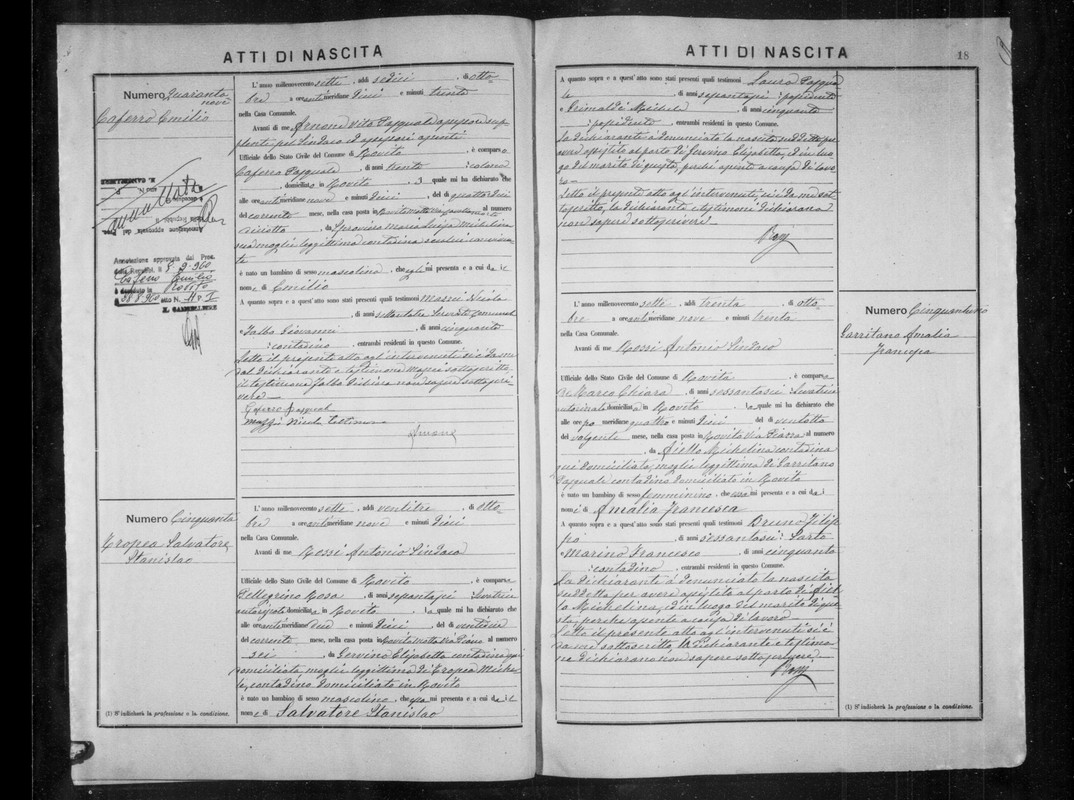 ATTI DI NASCITA
Numero Quaranta
nove
Caferro Emilio
Annotazione approvata dal Proc.
della Repubbl. il 8.9.960
Caferro Emilio
è deceduto in Rovito
il 28.8.960 atto N. 11 P I
L'anno millenovecento sette, addì sedici, di otto
bre a ore anti meridiane dieci e minuti trenta
nella Casa Comunale.
Avanti di me Arnone Vito Pasquale assessore sup
plente pel Sindaco ed assessori assenti
Ufficiale dello Stato Civile del Comune di Rovito, è comparso
Caferro Pasquale, di anni trenta, colono
domiciliato in Rovito, il quale mi ha dichiarato che
alle ore anti meridiane nove e minuti dieci, del dì quattordici
del corrente mese, nella casa posta in
, da Maria Luisa Michelina
sua moglie legittima contadina seco lui conviven
te
è nato un bambino di sesso mascolino, che egli mi presenta e a cui dà il
nome di Emilio
A quanto sopra e a quest'atto sono stati presenti quali testimoni Nicola
, di anni settantatre
e Falbo Giovanni, di anni cinquanta
contadino, entrambi residenti in questo Comune.
Letto il presente atto agl'intervenuti si è da me
dal dichiarante e testimone sottoscritto
il testimone Falbo dichiara non sapere sottoscri
vere
Caferro Pasquale
Nicola testimone
Arnone
Numero Cinquanta
Tropea Salvatore
Stanislao
L'anno millenovecento sette, addì ventitre, di otto
bre a ore anti meridiane nove e minuti dieci
nella Casa Comunale.
Avanti di me Rossi Antonio Sindaco
Ufficiale dello Stato Civile del Comune di Rovito, è comparsa
Pellegrino Rosa, di anni levatrice
autorizzata domiciliata in Rovito, la quale mi ha dichiarato che
alle ore anti meridiane due e minuti dieci, del dì ventidue
del corrente mese, nella casa posta in Rovito Motta Via Piano al numero
sei, da Cervino Elisabetta contadina qui
domiciliata, moglie legittima di Tropea Miche
le, contadino domiciliato in Rovito
è nato un bambino di sesso mascolino, che essa mi presenta e a cui dà il
nome di Salvatore Stanislao
(1) S'indicherà la professione o la condizione.
ATTI DI NASCITA
18
A quanto sopra e a quest'atto sono stati presenti quali testimoni Lauro Pasqua
le, di anni possidente
e Grimaldi Michele, di anni cinquanta
possidente, entrambi residenti in questo Comune.
La dichiarante à denunciato la nascita suddetta per
avere assistito al parto di Cervino Elisabetta, ed in luo
go del marito di questa, perchè assente a causa di lavo
ro
Letto il presente atto agl'intervenuti, si è da me sot
toscritto, la dichiarante e testimoni dichiarano
non sapere sottoscrivere
Numero Cinquantuno
Garritano Amalia
Francesca
L'anno millenovecento sette, addì trenta, di otto
bre a ore anti meridiane nove e minuti trenta
nella Casa Comunale.
Avanti di me Rossi Antonio Sindaco
Ufficiale dello Stato Civile del Comune di Rovito, è comparsa
De Marco Chiara, di anni sessantasei levatrice
autorizzata domiciliata in Rovito, la quale mi ha dichiarato che
alle ore po meridiane quattro e minuti dieci, del dì ventotto
del volgente mese, nella casa posta in Rovito Via Piazza al numero
, da Michelina contadina
qui domiciliata, moglie legittima di Garritano
Pasquale contadino domiciliato in Rovito
è nato un bambino di sesso femminino, che essa mi presenta e a cui dà i
nomi di Amalia Francesca
A quanto sopra e a quest'atto sono stati presenti quali testimoni Bruno Filip
po, di anni sessantasei Sarto
e Marino Francesco, di anni cinquanta
contadino, entrambi residenti in questo Comune.
La dichiarante à denunciato la nascita
suddetta per avere assistito al parto di
Michelina, ed in luogo del marito di que
sta, perchè assente a causa di lavoro
Letto il presente atto agl'intervenuti si è
da me sottoscritto, la dichiarante e testimo
ni dichiarano non sapere sottoscrivere
(1) S'indicherà la professione o la condizione.